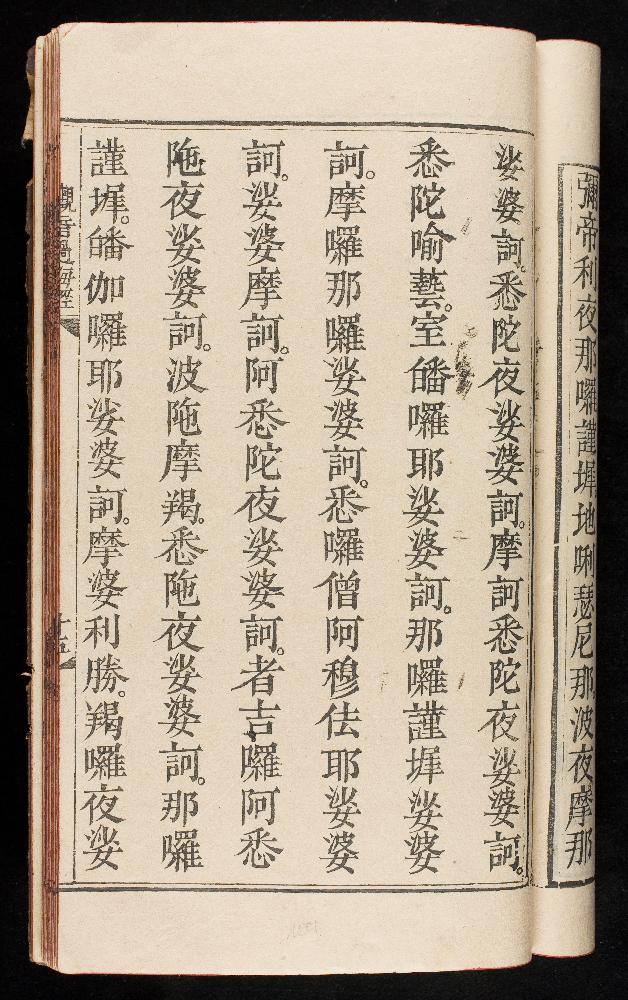 彌帝利夜那囉謹墀地唎瑟尼那波夜摩那
娑婆訶。悉陀夜娑婆訶。摩訶悉陀夜娑婆訶。
悉陀喻藝。室皤囉耶娑婆訶。那囉謹墀娑婆
訶。摩囉那囉娑婆訶。悉囉僧阿穆佉耶娑婆
訶。娑婆摩訶。阿悉陀夜娑婆訶。者吉囉阿悉
陁夜娑婆訶。波陁摩羯。悉陁夜娑婆訶。那囉
謹墀。皤伽囉耶娑婆訶。摩婆利勝。羯囉夜娑
觀音過海經
十五